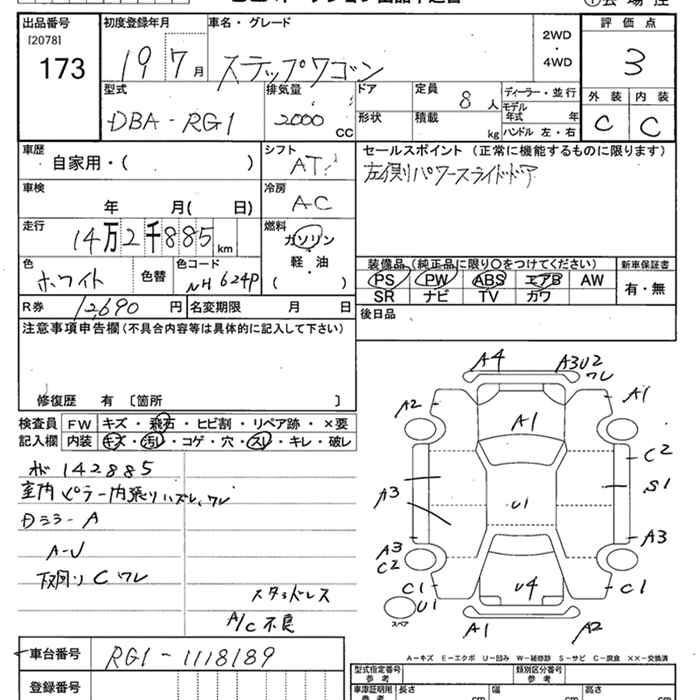 出品番号 初度登録年月 車名・グレード 評価点
[2078] 2WD
173 19 7月 ステップワゴン ・ 3
4WD
型式 排気量 ドア 定員 8人 ディーラー・並行 外装 内装
DBA-RG1 2000cc 形状 積載 kg モデル年式 年 C C
ハンドル 左・右
車歴 自家用・( ) シフト AT セールスポイント (正常に機能するものに限ります)
左側パワースライドドア
車検 年 月( 日) 冷房 AC
走行 14万2千885km 燃料 ガソリン
軽・油
( )
装備品(純正品に限り○をつけてください) 新車保証書
色 ホワイト 色替 色コード NH624P PS PW ABS エアB AW 有・無
SR ナビ TV カワ
R券 12,690円 名変期限 月 日 後日品
注意事項申告欄(不具合内容等は具体的に記入して下さい)
修復歴 有 〔箇所 〕
検査員 FW キズ・飛石・ヒビ割・リペア跡・×要
記入欄 内装 キズ・汚れ・コゲ・穴・スレ・キレ・破レ
142885
室内ピラー内張りハズレ、ワレ
Dミラー A
A-U
下回りC ワレ
スタッドレス
A/C不良
A4 A3U2
ワレ
A2 A1 A1
C2
S1
A3 U1
A3 A3
C2
C1 U4 C1
U1
スペア A1 A2
A-キズ E-エクボ U-凹み W-補修跡 S-サビ C-腐食 ××-交換済
車台番号 RG1-1118189
登録番号
型式指定番号 参考 類別区分番号 参考
車庫証明用 参考 長さ cm 幅 cm 高さ cm